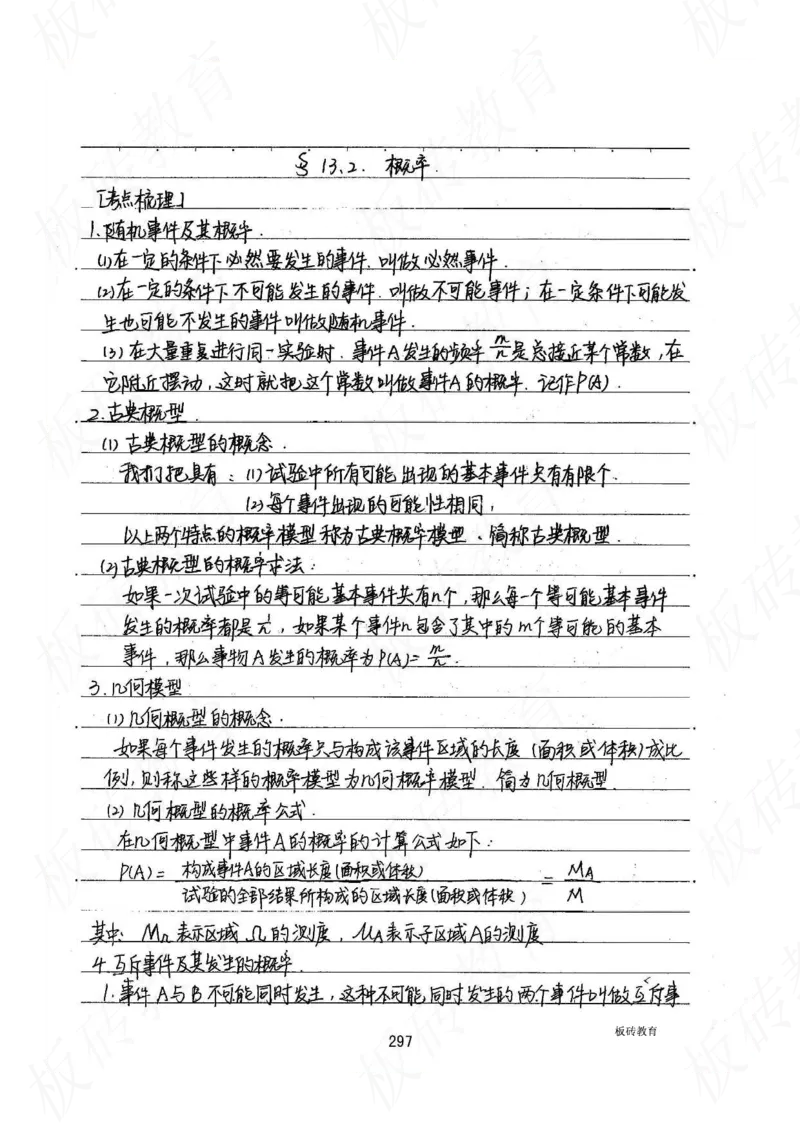 § 13.2. 概率.
[考点梳理]
1.随机事件及其概率.
(1)在一定的条件下必然要发生的事件.叫做必然事件.
(2)在一定的条件下不可能发生的事件.叫做不可能事件；在一定条件下可能发
生也可能不发生的事件叫做随机事件.
(3)在大量重复进行同一实验时.事件A发生的频率m/n是总接近某个常数,在
它附近摆动,这时就把这个常数叫做事件A的概率.记作P(A).
2.古典概型.
(1)古典概型的概念.
我们把具有:(1)试验中所有可能出现的基本事件只有有限个.
(2)每个事件出现的可能性相同,
以上两个特点的概率模型称为古典概率模型、简称古典概型.
(2)古典概型的概率求法:
如果一次试验中的等可能基本事件共有n个,那么每一个等可能基本事件
发生的概率都是1/n,如果某个事件n包含了其中的m个等可能的基本
事件,那么事物A发生的概率为P(A)=m/n.
3.几何模型
(1)几何概型的概念.
如果每个事件发生的概率只与构成该事件区域的长度(面积或体积)成比
例,则称这些样的概率模型为几何概率模型.简为几何概型.
(2)几何概型的概率公式.
在几何概型中事件A的概率的计算公式如下:
P(A)= 构成事件A的区域长度(面积或体积) = MA
试验的全部结果所构成的区域长度(面积或体积) M
其中: MΩ表示区域Ω的测度,MA表示子区域A的测度
4.互斥事件及其发生的概率.
1.事件A与B不可能同时发生,这种不可能同时发生的两个事件叫做互斥事
板砖教育
297